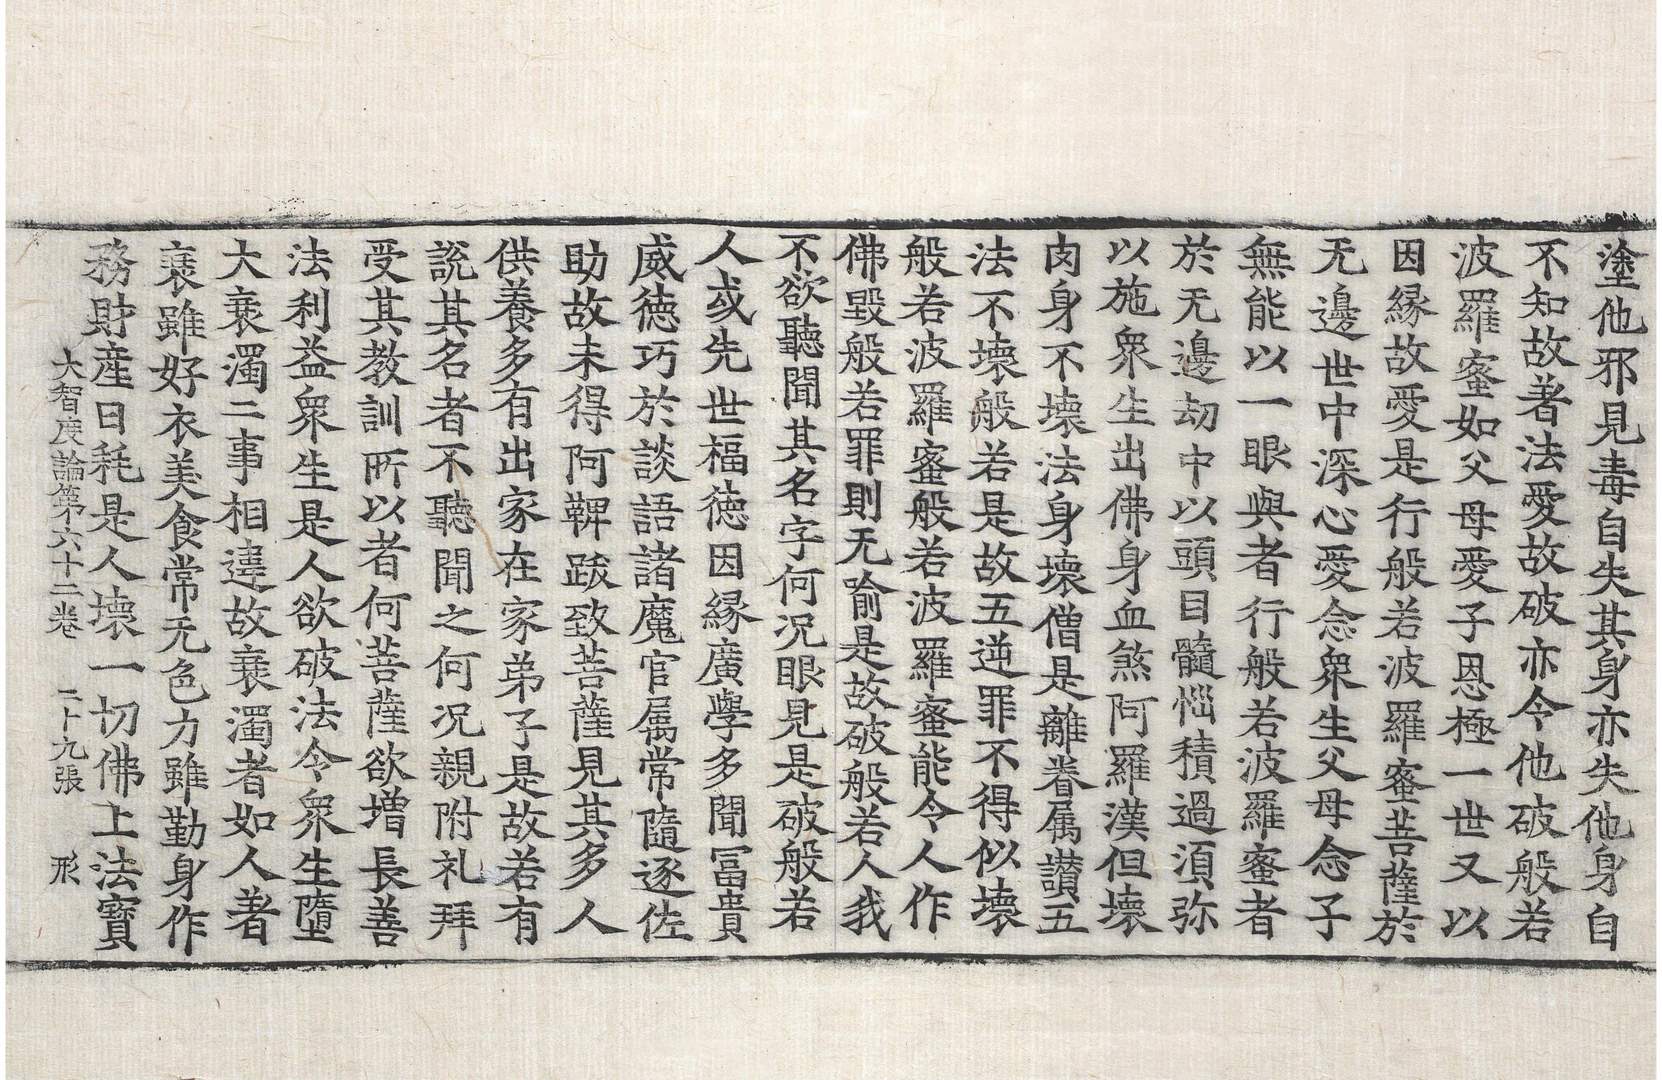 塗他邪見毒自失其身亦失他身自
不知故著法愛故破亦令他破般若
波羅蜜如父母愛子恩極一世又以
因緣故愛是行般若波羅蜜菩薩於
无邊世中深心愛念衆生父母念子
無能以一眼與者行般若波羅蜜者
於无邊劫中以頭目髓惱積過湏弥
以施衆生出佛身血煞阿羅漢但壞
肉身不壞法身壞僧是離眷属讚五
法不壞般若是故五逆罪不得似壞
般若波羅蜜般若波羅蜜能令人作
佛毀般若罪則无喻是故破般若人我
不欲聽聞其名字何况眼見是破般若
人或先世福徳因緣廣學多聞冨貴
威徳巧於談語諸魔官属常隨逐佐
助故未得阿鞞跋致菩薩見其多人
供養多有出家在家弟子是故若有
說其名者不聽聞之何况親附礼拜
受其教訓所以者何菩薩欲增長善
法利益衆生是人欲破法令衆生墮
大衰濁二事相違故衰濁者如人著
衰雖好衣美食常无色力雖勤身作
務財産日耗是人壞一切佛上法寶
大智度論第六十二卷 二十九張 形